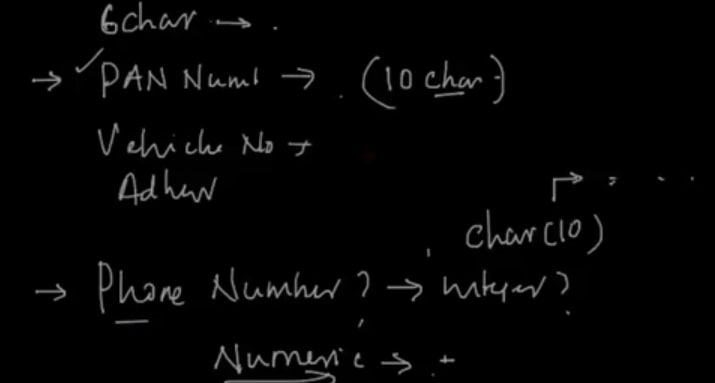 6char → .
→ ✓ PAN Num → . (10 char)
Vehicle No →
Adhar
char(10)
→ Phone Number? → integer?
Numeric → +